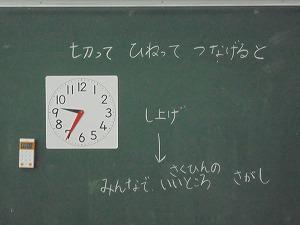 切って ひねって つなげると
し上げ
さくひんの
みんなで いいところ さがし
12
1
2
3
4
5
6
7
8
9
10
11